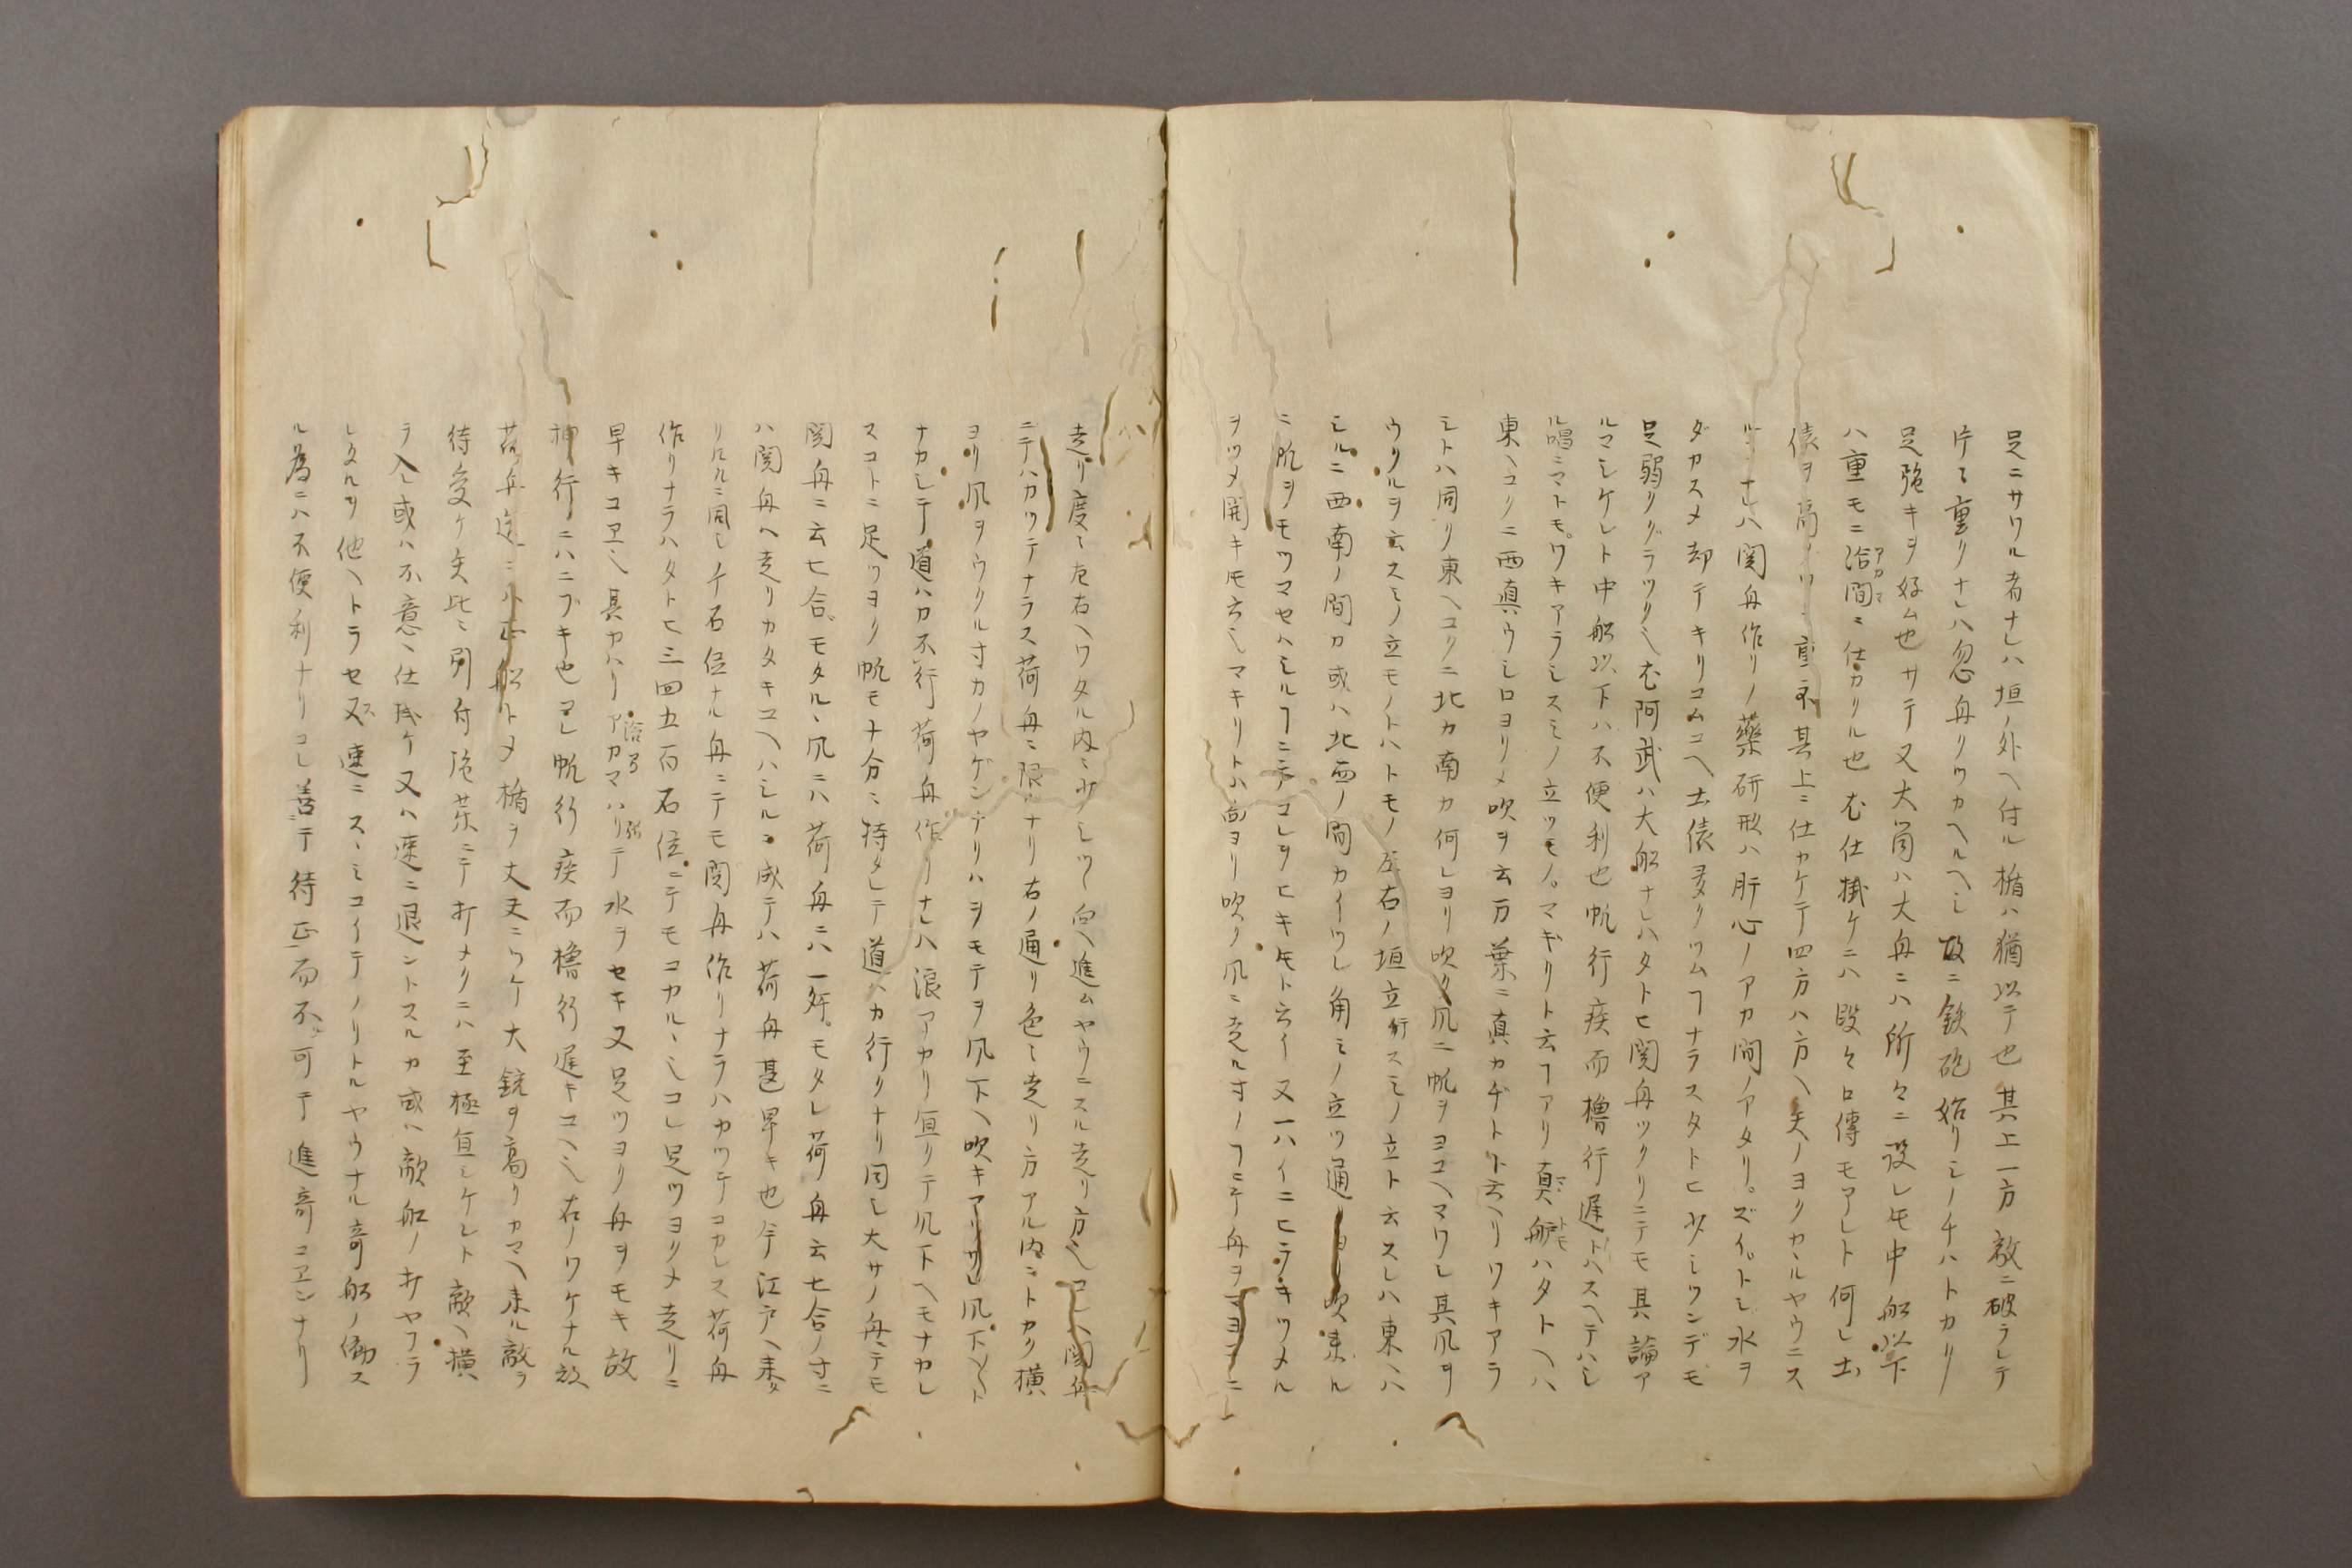 足ニサワル者ナレハ垣ノ外ヘ付ル楯ハ猶以テ也其上一方敵ニ破ラレテ
片ミ重リナレハ忽舟リワカヘルヘシ故ニ鉄砲始リシノチハトカリ
足強キヲ好ム也サテ又大筒ハ大舟ニハ所々ニ設レ𪜈中船以下
ハ重モニ浛間ニ仕カリル也尤仕掛ケニハ段々口傳モアレト何レ土
俵ヲ高ノ其上ニ仕カケテ四方八方ヘ矢ノヨクカヽルヤウニス
ナレハ関舟作リノ藥研形ハ肝心ノアカ間ノアタリズイトシ水ヲ
ダカスメ却テキリコムユヘ土俵多クツムヿナラスタトヒ少シツンデモ
足弱クグラツク也尤阿武ハ大船ナレハタトヒ関舟ツクリニテモ其論ア
ルマシケレト中船以下ハ不便利也帆行疾而櫓行遅トハスヘテハシ
ル唱ニマトモワキアラシスミノ立ツモノマギリト云ヿアリ真艫ハタトヘハ
東ヘユクニ西真ウシロヨリメ吹ヲ云万葉ニ真カヂトト云ヘリワキアラ
シトハ同リ東ヘユクニ北カ南カ何レヨリ吹ク凨ニ帆ヲヨコヘマワシ其凨ヲ
ウクルヲ云スミノ立モノトハトモノ左右ノ垣立ノスミノ立ト云スレハ東ヘハ
シルニ西南ノ間カ或ハ北西ノ間カイツレ角ミノ立ツ通ヨリ吹来ル
ニ帆ヲモツマセハシルヿニテコレヲヒキ𪜈ト云イ又一ハイニヒラキツメル
ヲツメ開キ𪜈云シマキリトハ向ヨリ吹ク凨ニ走ル寸ノヿニテ舟ヲマヨコニ
走リ度ミ左右ヘワタル内ニ少シツヽ向ヘ進ムヤウニスル走リ方也コレハ関舟
ニテハカツテナラス荷舟ニ限ナリ右ノ通リ色ミ走リ方アル内ニトカク横
ヨリ凨ヲウクル寸カノヤゲンナリハヲモテヲ凨下ヘ吹キアリサレ凨下ヘト
ナカレテ道ハカ不行荷舟作リナレハ浪アカリ宜リテ凨下ヘモナカレ
スコトニ足ツヨク帆モ十分ニ持タレテ道ハカ行クナリ同シ大サノ舟ニテモ
関舟ニ云七合モタルヽ凨ニハ荷舟ニハ一ハイモタレ荷舟云七合ノ寸ニ
ハ関舟ヘ走リカタキユヘハシルニ成テハ荷舟甚早キ也今江戸ヘ来ク
リルルニ同シ千石位ナル舟ニテモ関舟作リナラハカツテコカレス荷舟
作リナラハタトヒ三四五百石位ニテモコカルヽシコレ足ツヨクメ走リニ
早キユヱ也其カハリアカマハリテ水ヲセキ又足ツヨリ舟ヲモキ故
押行ニハニブキ也コレ帆行疾而櫓行遅キユヘ也右ノワケナル故
荷舟造ニハ正船トメ楯ヲ丈夫ニツケ大銃ヲ高リカマヘ来ル敵ヲ
待受ケ矢比ニ引付砲ニテ打メクニハ至極宜シケレト敵ヘ横
ラ入レ或ハ不意ニ仕掛ケ又ハ速ニ退ントスルカ或ハ敵船ノ打ヤフラ
レタルヲ他ヘトラセス又速ニスヽミコイテノリトルヤウナル奇船ノ働ス
ル為ニハ不便利ナリコレ善テ待正而不可テ進奇ユエンナリ